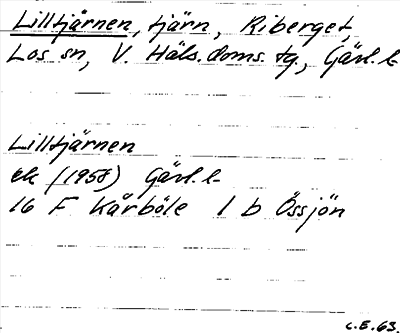 Lilltjärnen, tjärn, Riberget,
Los sn, V. Häls. doms. tg., Gävl. l.
Lilltjärnen
ek (1958) Gävl. l.
16 F Kårböle 1 b Össjön
C.E. 63.